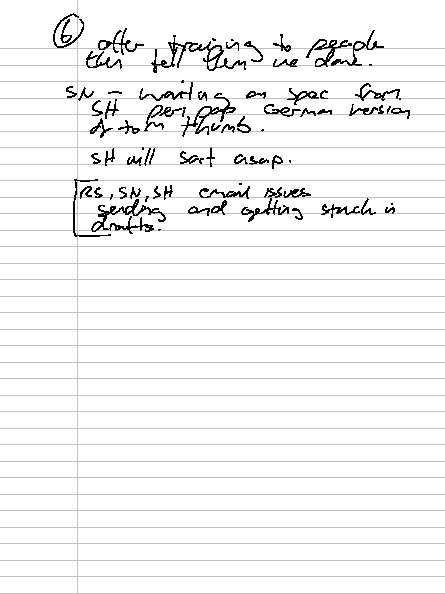 ⑥ offer training to people
then tell them we done.
SN - waiting on spec from
SH pen, pap German version
of tom thumb.
SH will sort asap.
RS, SN, SH email issues
sending and getting stuck in
drafts.